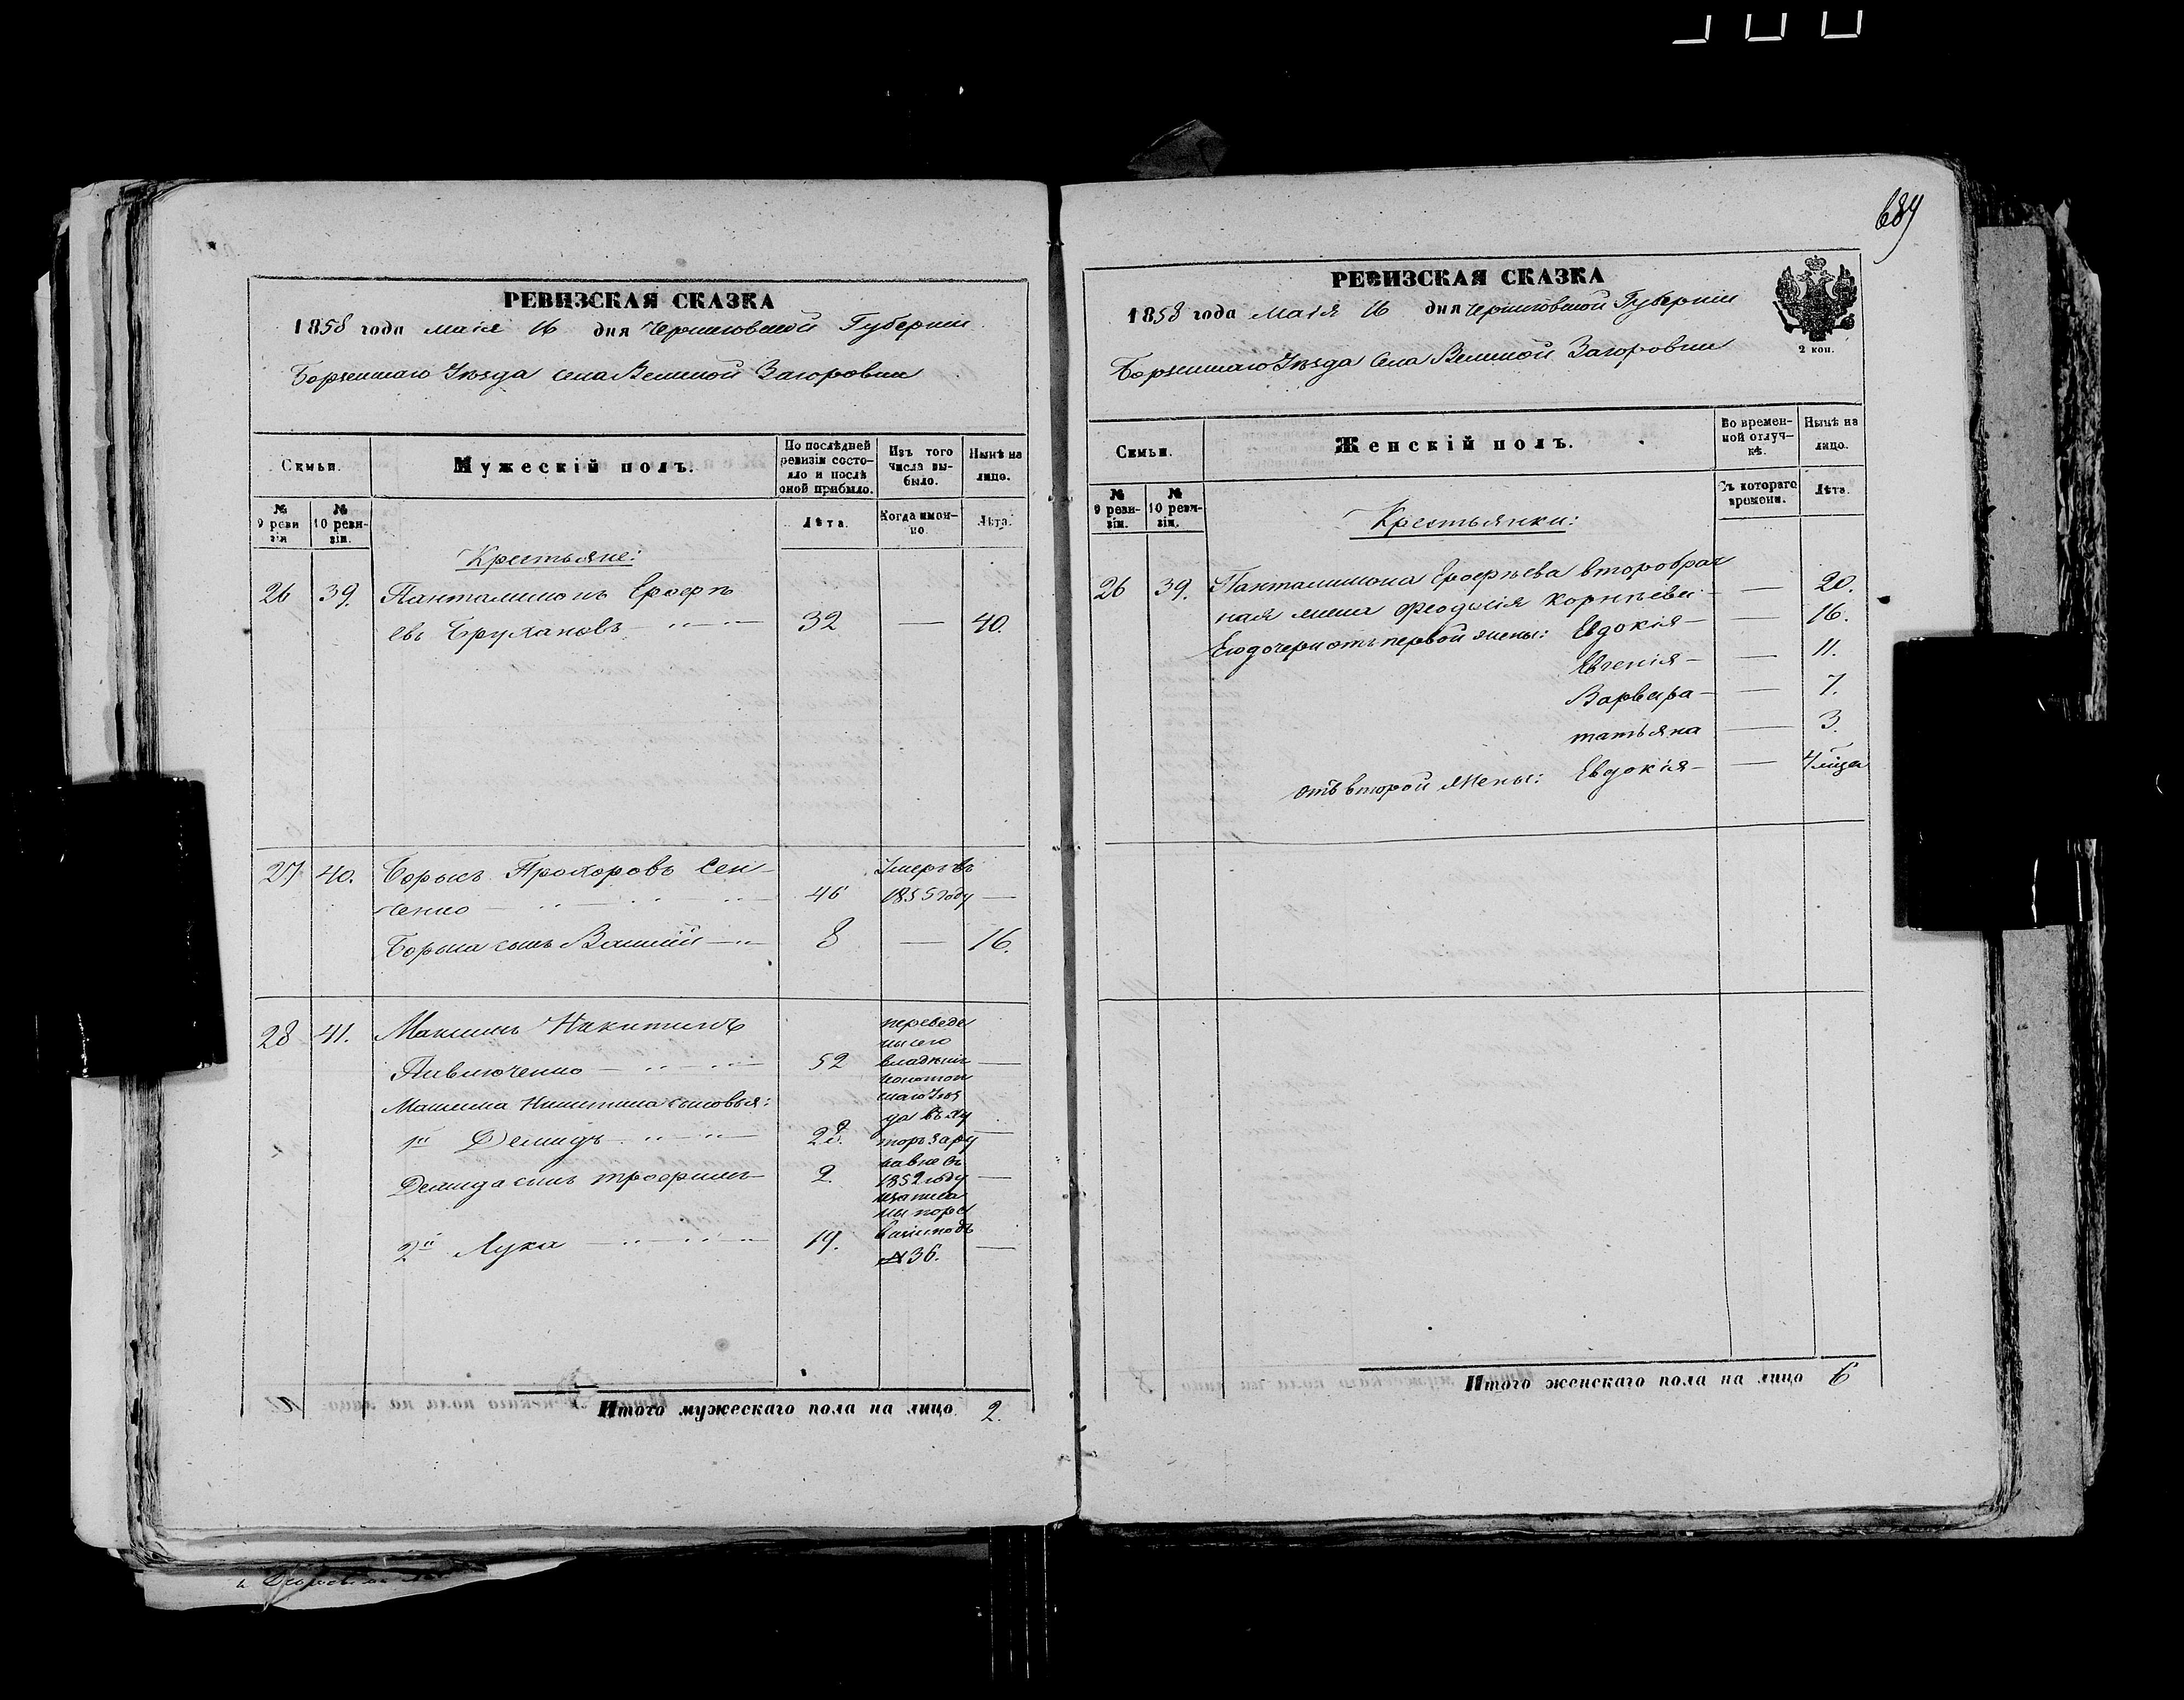 689
РЕВИЗСКАЯ СКАЗКА
1858 года маія 16 дня Черниговской Губерніи
Борзенскаго Уѣзда села Великой Загоровки
Семьи.
Мужескій полъ.
По послѣдней ревизіи состояло и послѣ оной прибыло.
Изъ того числа выбыло.
Нынѣ на лицо.
№ 9 ревизіи
№ 10 ревизіи.
Лѣта.
Когда именно.
Лѣта.
Крестьяне:
26 39. Панталимонъ Ерофѣ
евъ Брухановъ 32 — 40.
27 40. Борысъ Прохоровъ Сен- Умеръ въ
ченко 46 1855 году —
Борыса сынъ Василій 8 — 16.
28 41. Максимъ Никитинъ
Павлюченко 52 —
Максима Никитина сыновья:
1й Демидъ 28. —
Демида сынъ трофимъ 2. —
2й Лука 19. —
переведе
ны его
владѣніи
конотоп
скаго Уѣз
да въ ху
торъ
1852 году
записа
ны по ре
визіи подъ
№ 36.
Итого мужескаго пола на лицо 2.
РЕВИЗСКАЯ СКАЗКА
1858 года маія 16 дня Черниговской Губерніи
Борзенскаго Уѣзда села Великой Загоровки
2 коп.
Семьи.
Женскій полъ.
Во временной отлучкѣ.
Нынѣ на лицо.
№ 9 ревизіи.
№ 10 ревизіи.
Съ котораго времени.
Лѣта.
Крестьянки:
26 39. Панталимона Ерофѣева второбрач
ная жена Феодосія Корнѣева — 20.
Его дочери отъ первой жены: Евдокія — 16.
Евгенія — 11.
Варвара — 7.
татьяна — 3.
отъ второй жены: Евдокія — 4 мѣсяца
Итого женскаго пола на лицо 6